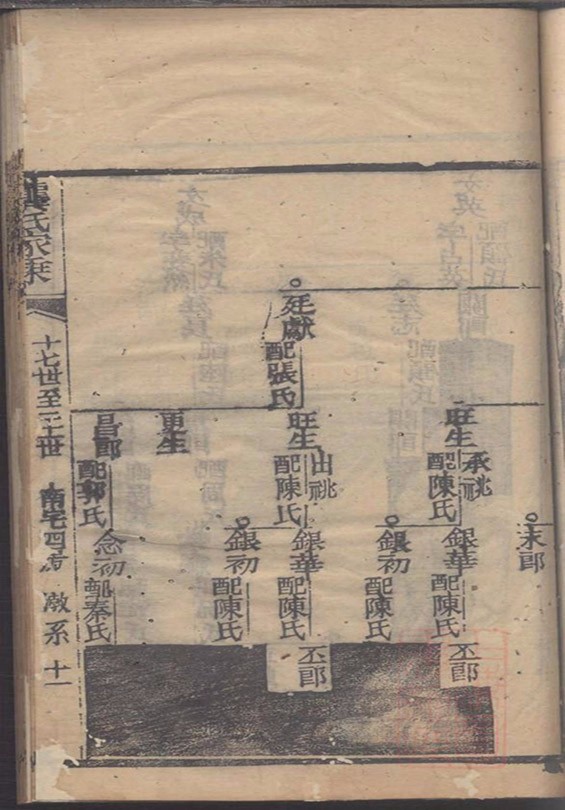 永郎
旺生
承祧
配陳氏
銀華
配陳氏
丕郎
銀初
配陳氏
廷獻
配張氏
旺生
出祧
配陳氏
銀華
配陳氏
丕郎
銀初
配陳氏
更生
昌郎
配郭氏
念初
配秦氏
龔氏家乘
十七世至二十世
南宅四房
系十一